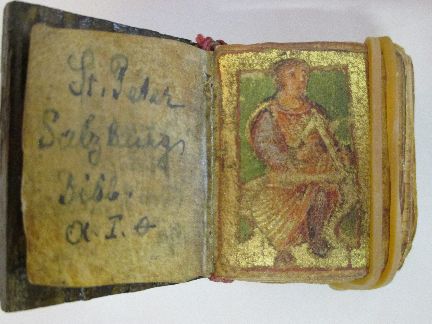 St. Peter
Salzburg,
Bibl.
a. I. 0